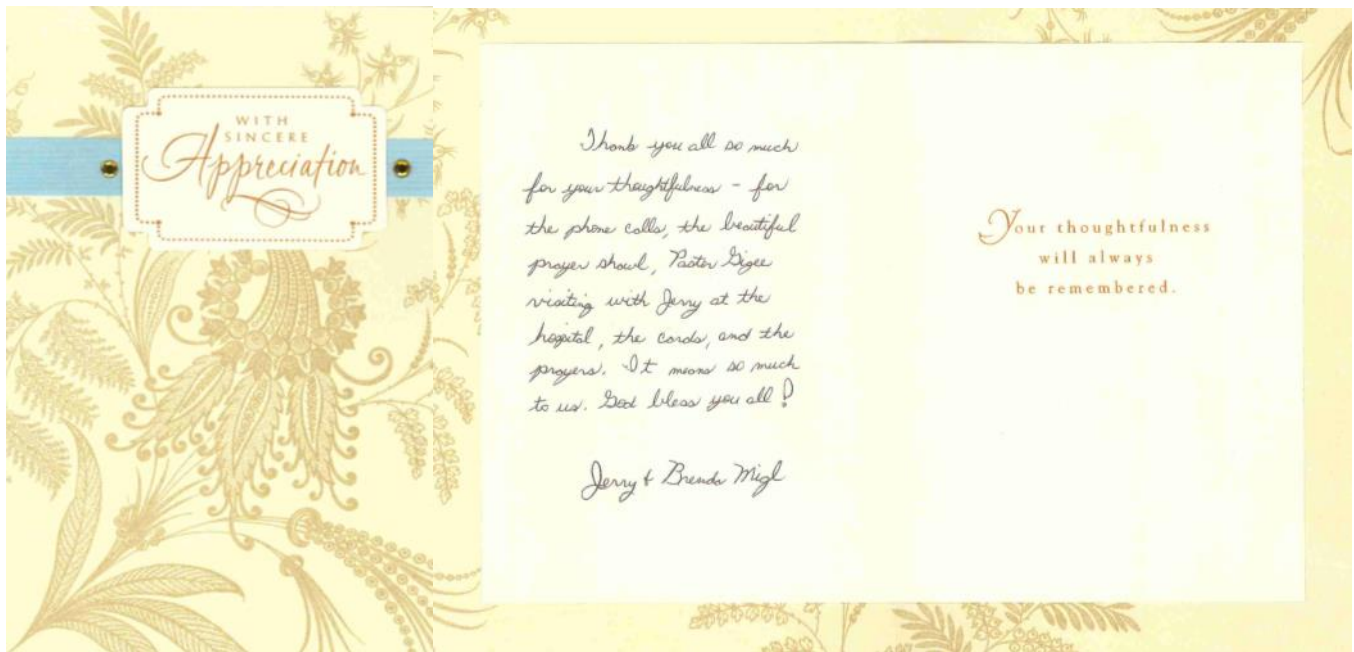 WITH
SINCERE
Appreciation
Thank you all so much
for your thoughtfulness - for
the phone calls, the beautiful
prayer shawl, Pastor Gigee
visiting with Jerry at the
hospital, the cards, and the
prayers. It means so much
to us. God bless you all!
Jerry & Brenda Migl
Your thoughtfulness
will always
be remembered.